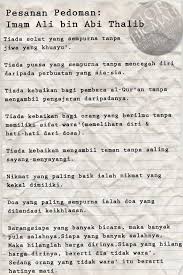 Pesanan Pedoman:
Imam Ali bin Abi Thalib
Tiada solat yang sempurna tanpa
jiwa yang khusyu'.
Tiada puasa yang sempurna tanpa mencegah diri
daripada perbuatan yang sia-sia.
Tiada kebaikan bagi pembaca al-Qur'an tanpa
mengambil pengajaran daripadanya.
Tiada kebaikan bagi orang yang berilmu tanpa
memiliki sifat wara'(memelihara diri &
hati-hati dari dosa).
Tiada kebaikan mengambil teman tanpa saling
sayang-menyayangi.
Nikmat yang paling baik ialah nikmat yang
kekal dimiliki.
Doa yang paling sempurna ialah doa yang
dilandasi keikhlasan.
Barangsiapa yang banyak bicara, maka banyak
pula salahnya. Siapa yang banyak salahnya,
Maka hilanglah harga dirinya. Siapa yang hilang
harga dirinya, bererti dia tidak wara'.
Sedang orang yang tidak wara' itu bererti
hatinya mati.